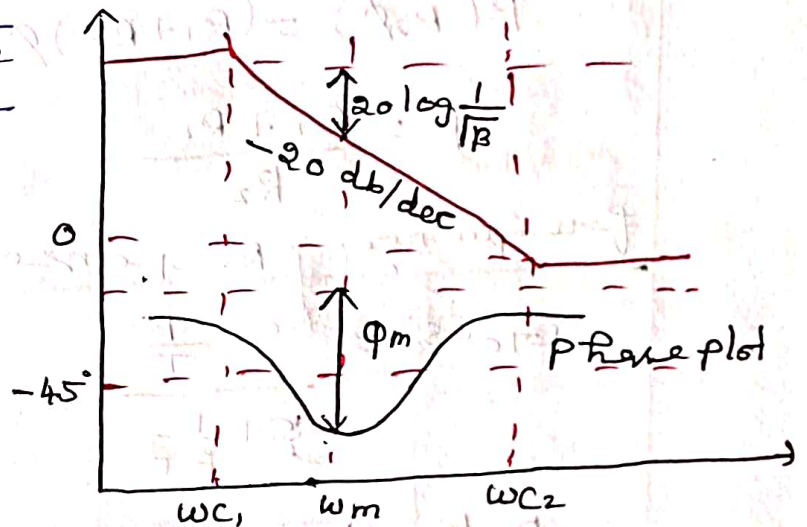 20 log 1/√β
-20 db/dec
0
φm
phase plot
-45°
ωc₁ ωm ωc₂